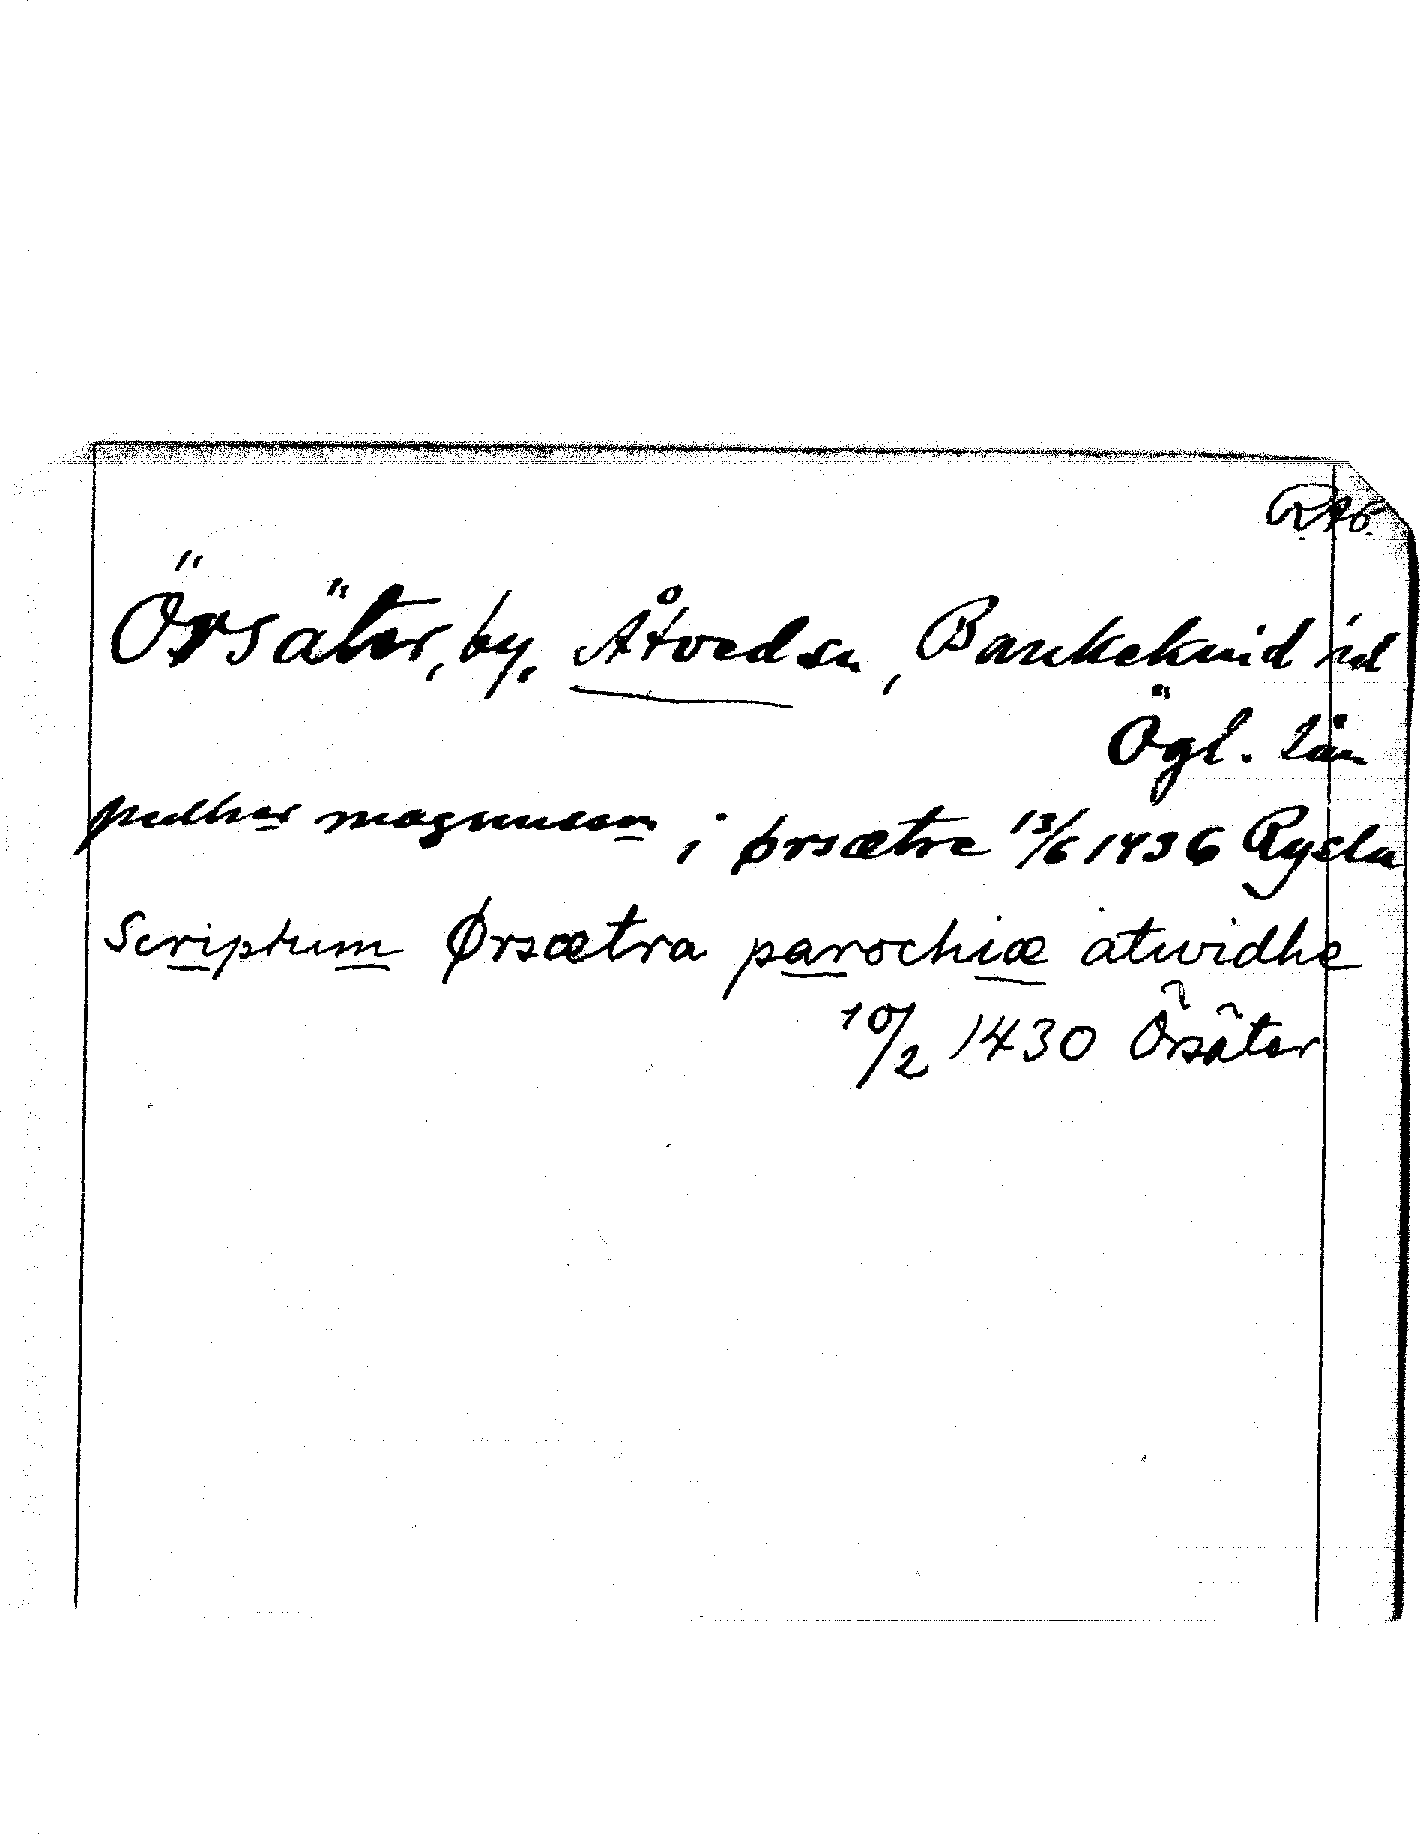 Örsäter, by, Åtved sn, Bankekind hd
Ögl. län
pedher magnusson i ørsætre 13/6 1436 Rysln
Scriptum Ørsætra parochiæ atwidhe
10/2 1430 Örsäter